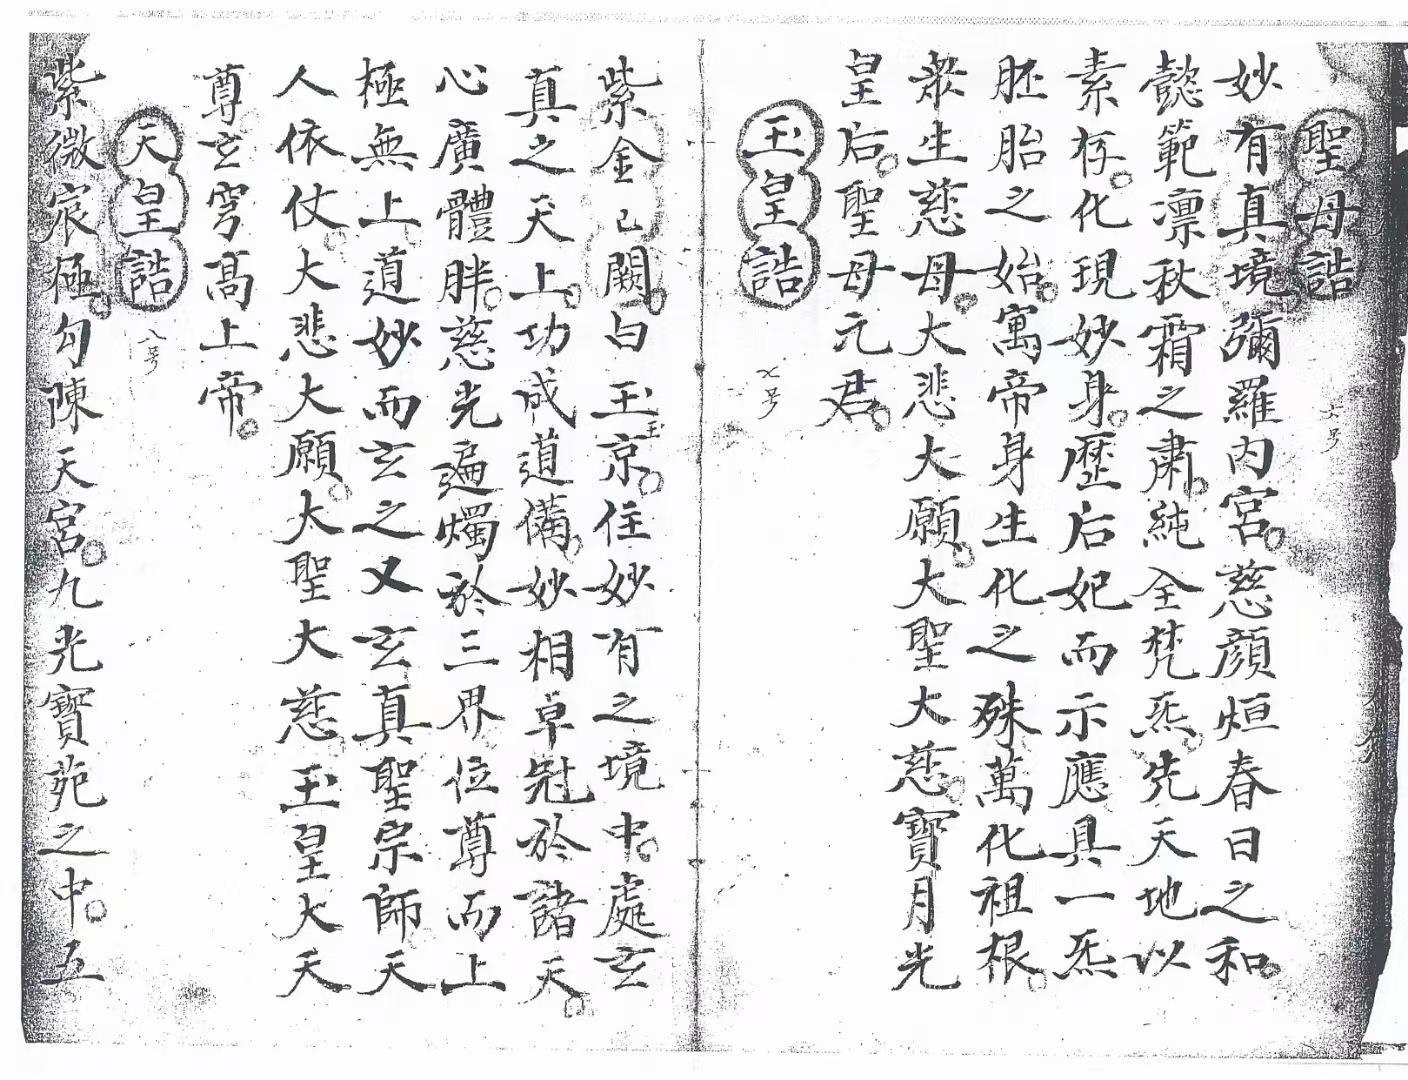 聖母誥
六号
妙有真境彌羅內宮慈顏烜春日之和
懿範凛秋霜之肅純全梵炁先天地以
素存化現妙身歷后妃而示應具一炁
胚胎之始寓帝身生化之殊萬化祖根
衆生慈母大悲大願大聖大慈寶月光
皇后聖母元君
玉皇誥
七号
紫金闕白玉京住妙有之境中處玄
真之天上功成道備妙相卓冠於諸天
心廣體胖慈光遍燭於三界位尊而上
極無上道妙而玄之又玄真聖宗師天
人依仗大悲大願大聖大慈玉皇大天
尊玄穹高上帝
天皇誥
八号
紫微宸極勾陳天宮九光寶苑之中五